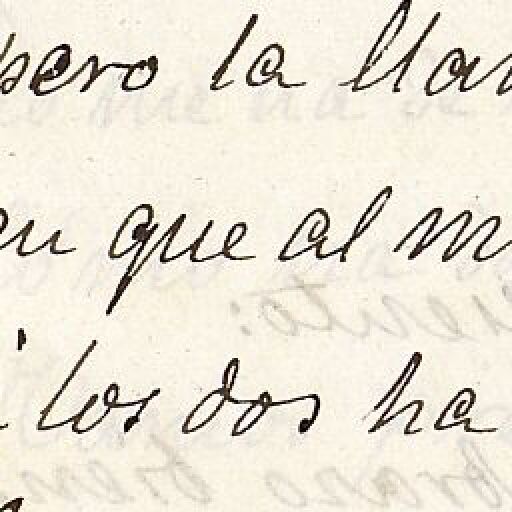 pero la llam
en que al m
i los dos ha